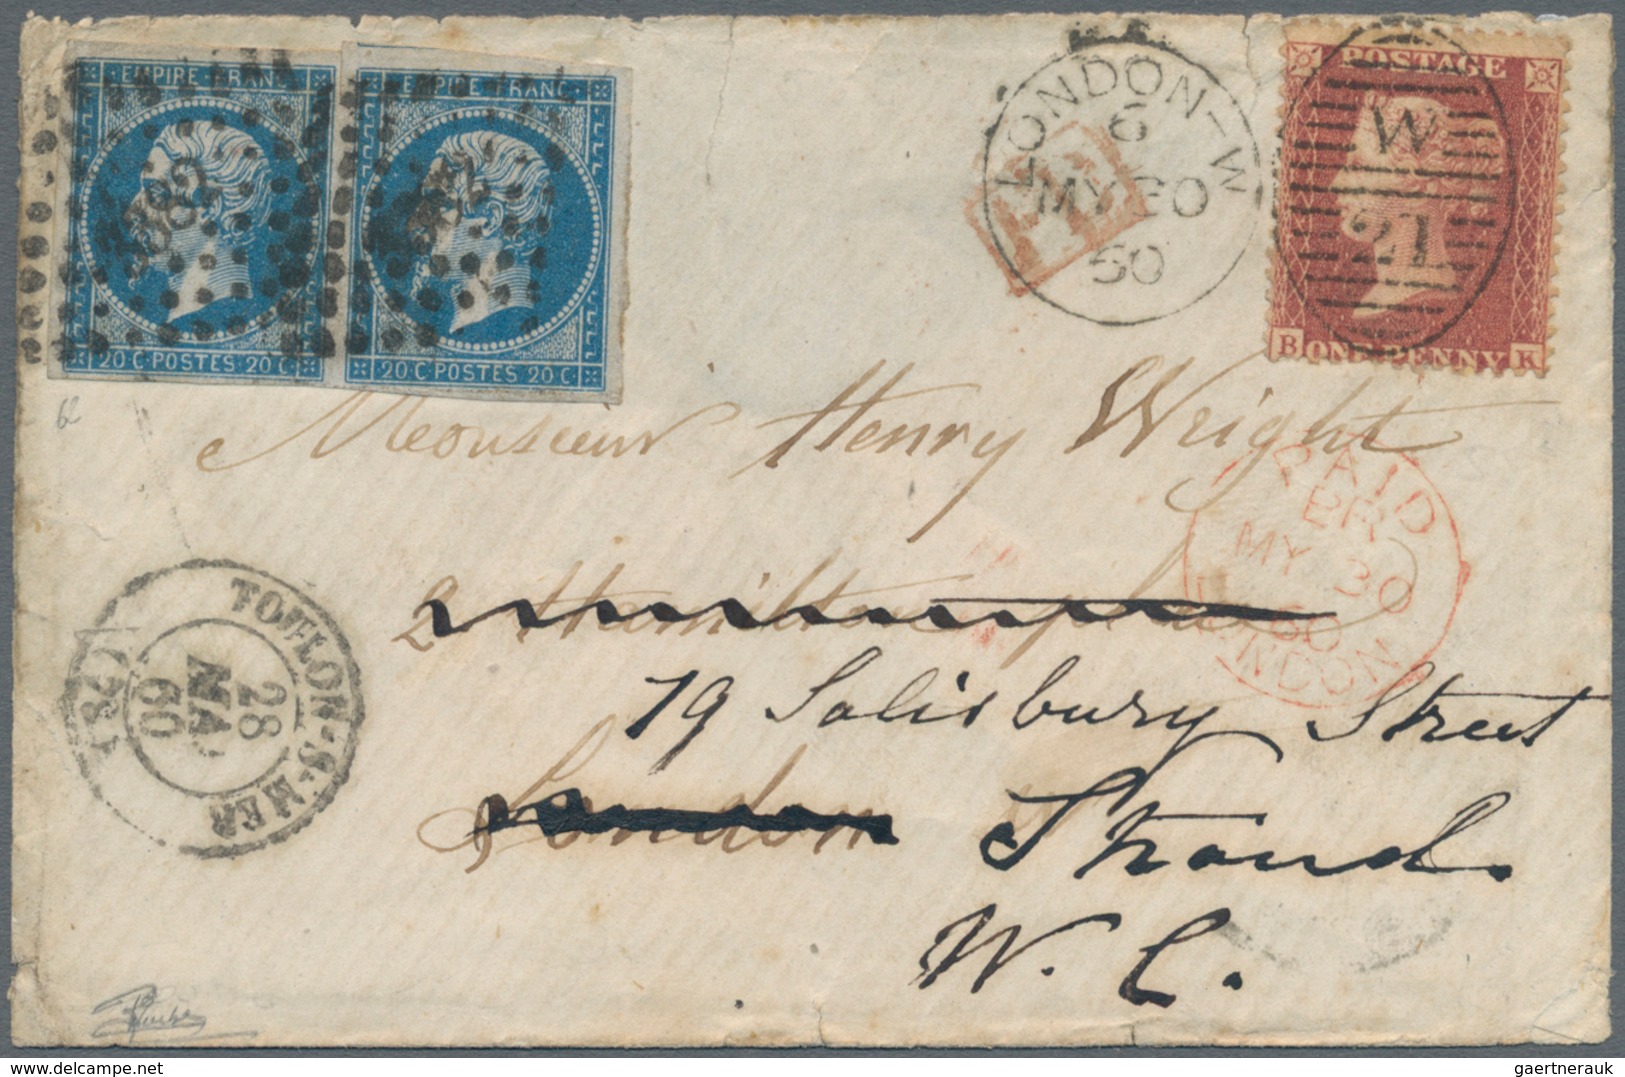 EMPIRE FRANC
EMPIRE FRANC
20 C POSTES 20 C
20 C POSTES 20 C
LONDON-W
6
MY 30
60
POSTAGE
W
21
B ONE PENNY K
Monsieur Henry Wright
PAID
MY 30
60
LONDON
2 Hamilton place
79 Salisbury Street
London
Strand
W. C.
TOULON-S-MER
28
MAI
60
(78)
gaertnerauk